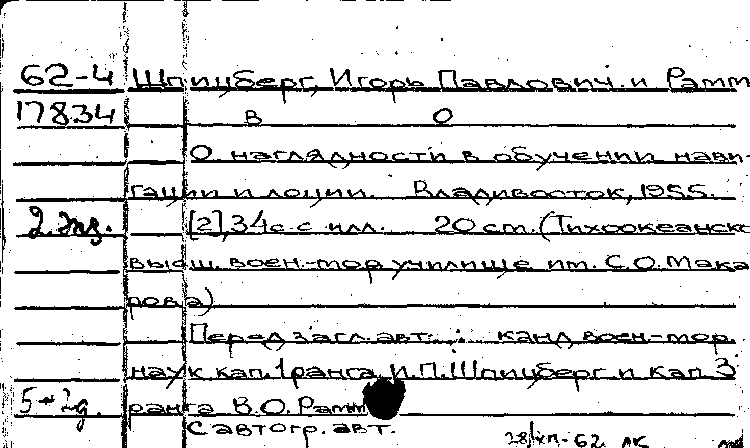 62-4 Шпицберг, Игорь Павлович и Рамм
17834 В О
О наглядности в обучении нави-
гации и лоции. Владивосток, 1955.
2 экз. [2], 34 с. с илл. 20 см. (Тихоокеанско
высш. воен.-мор училище им. С.О. Мака
рова)
Перед загл. авт.: канд воен-мор.
наук кап. 1 ранга И.П. Шпицберг и кап. 3
ранга В.О. Рамм
С автогр. авт.
28/XII-62 ЛК